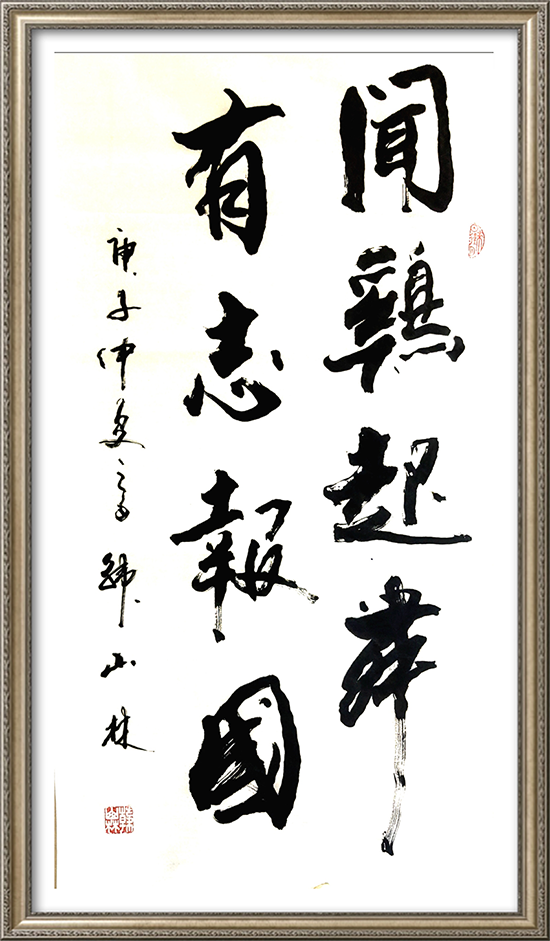 聞鷄起舞
有志報國
庚子仲夏之高 韓山林